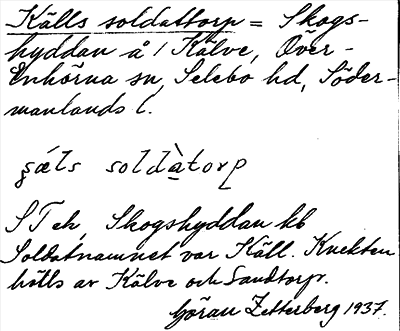 Källs soldattorp = Skogs-
hyddan å / Kälve, Över-
Enhörna sn, Selebo hd, Söder-
manlands l.
soldàtorp
S T eh, Skogshyddan kb
Soldatnamnet var Käll. Knekten
hölls av Kälve och Sandtorp.
Göran Zetterberg 1937.